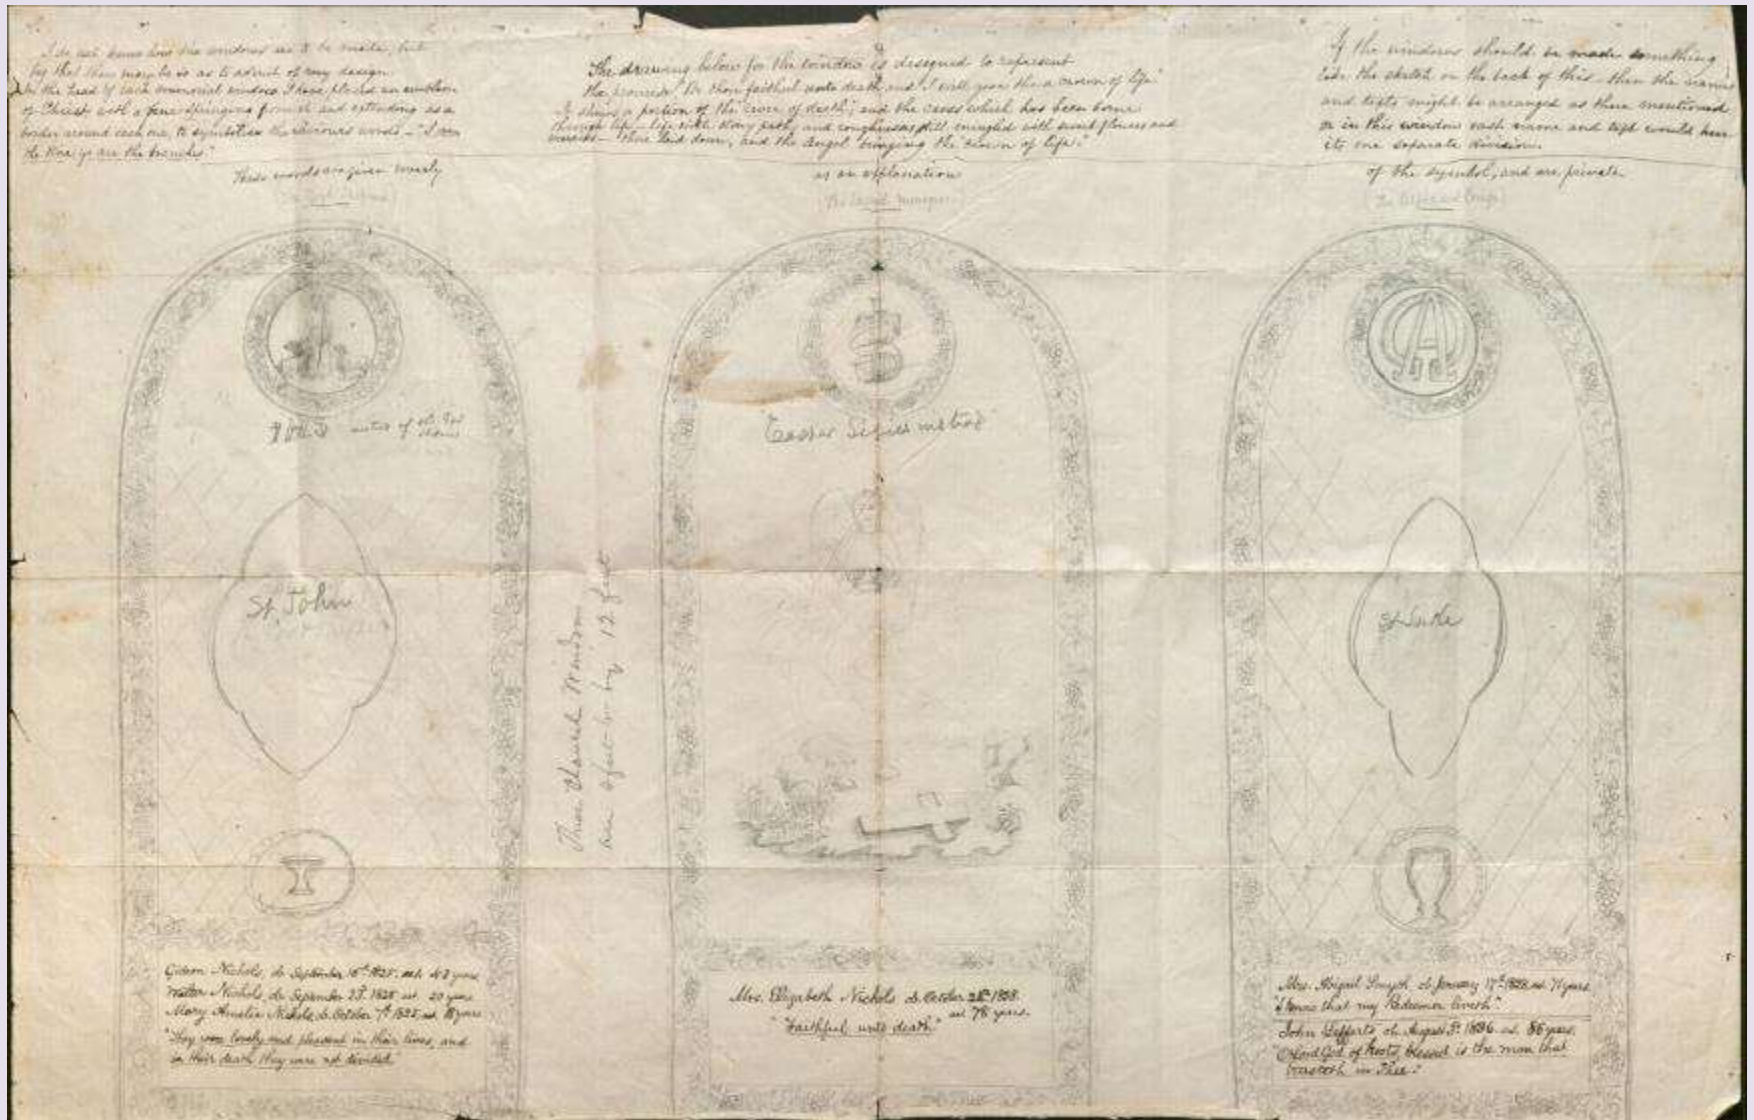 I do not know how the windows are to be made, but
by that they may be so as to admit of any design.
In the head of each memorial window I have placed an emblem
of Christ with a vine springing from it and extending as a
border around each one, to symbolise the Saviours words - "I am
the Vine, ye are the branches."
The drawing below for the window is designed to represent
the promise "Be thou faithful unto death and I will give thee a crown of life."
It shows a portion of the "river of death", and the cross which has been borne
through life - life with stony paths and roughness still mingled with sweet flowers and
there laid down, and the Angel bringing the "crown of life."
If the windows should be made something
like the sketch on the back of this - then the names
and texts might be arranged as there mentioned
or in this window each name and text would have
its own separate division.
These words are given merely
as an explanation
of the symbol, and are private.
St. John
St Luke
These Chancel Windows
are by 12 feet
Gideon Nichols, do September 16th 1825. aet. years
Walter Nichols, do September 23d. 1825 aet. 20 years
Mary Amelia Nichols do October 7th 1825 aet. 18 years
"They were lovely and pleasant in their lives, and
in their death they were not divided"
Mrs. Elizabeth Nichols do October 28th
aet 78 years.
"Faithful unto death"
Mrs. Abigail Smyth ob January 17th aet 71 years.
"I know that my Redeemer liveth".
John Lefferts ob August aet. years.
"O Lord God of hosts, blessed is the man that
trusteth in Thee."